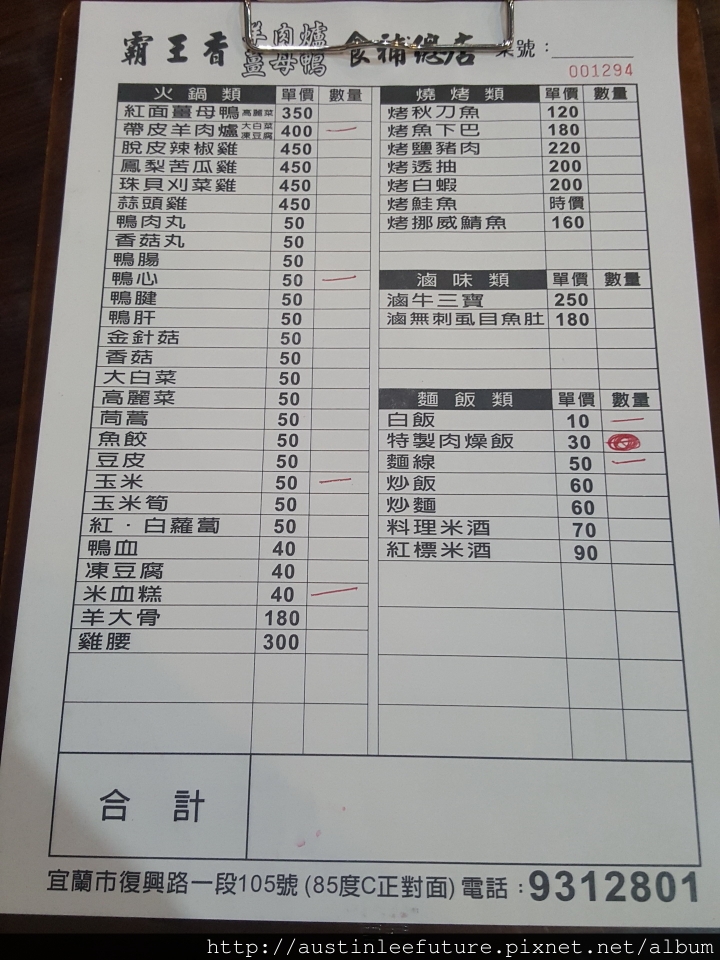 霸王香 羊肉爐 薑母鴨 食補總店 桌號：
001294
火鍋類 單價 數量
紅面薑母鴨 高麗菜 350
帶皮羊肉爐 大白菜 凍豆腐 400 一
脫皮辣椒雞 450
鳳梨苦瓜雞 450
珠貝刈菜雞 450
蒜頭雞 450
鴨肉丸 50
香菇丸 50
鴨腸 50
鴨心 50 一
鴨腱 50
鴨肝 50
金針菇 50
香菇 50
大白菜 50
高麗菜 50
茼蒿 50
魚餃 50
豆皮 50
玉米 50 一
玉米筍 50
紅．白蘿蔔 50
鴨血 40
凍豆腐 40
米血糕 40 一
羊大骨 180
雞腰 300
燒烤類 單價 數量
烤秋刀魚 120
烤魚下巴 180
烤鹽豬肉 220
烤透抽 200
烤白蝦 200
烤鮭魚 時價
烤挪威鯖魚 160
滷味類 單價 數量
滷牛三寶 250
滷無刺虱目魚肚 180
麵飯類 單價 數量
白飯 10 一
特製肉燥飯 30
麵線 50 一
炒飯 60
炒麵 60
料理米酒 70
紅標米酒 90
合計
宜蘭市復興路一段105號 (85度C正對面) 電話：9312801
http://austinleefuture.pixnet.net/album